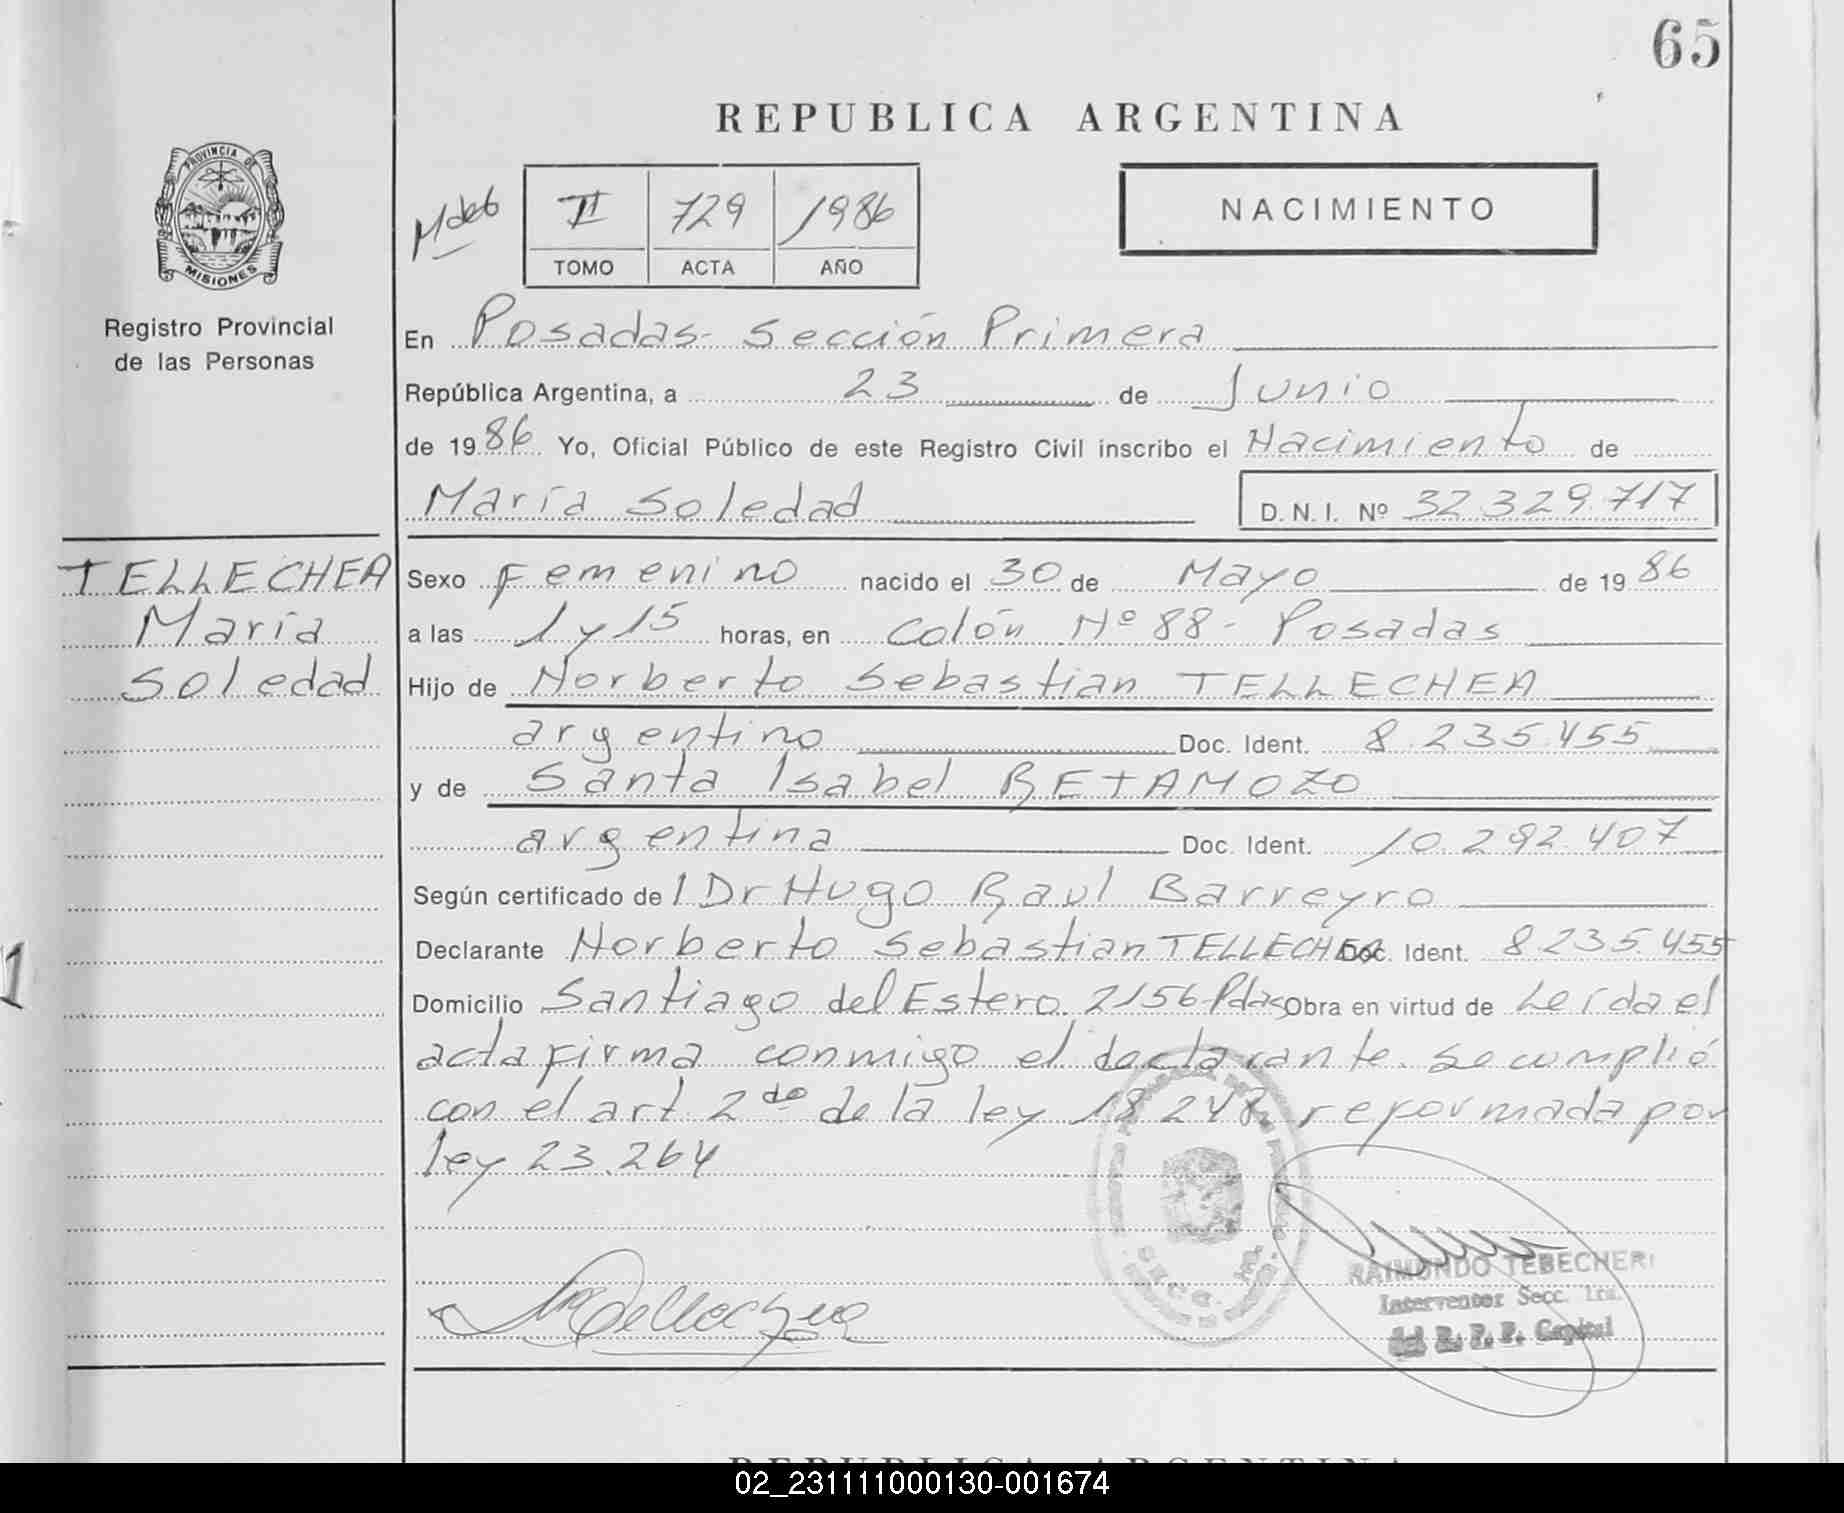 65
REPUBLICA ARGENTINA
PROVINCIA DE
MISIONES
Registro Provincial
de las Personas
II 729 1986
TOMO ACTA AÑO
NACIMIENTO
En Posadas- Sección Primera
República Argentina, a 23 de Junio
de 1986 Yo, Oficial Público de este Registro Civil inscribo el Nacimiento de
María Soledad D.N.I. Nº 32.329.717
TELLECHEA
María
Soledad
Sexo Femenino nacido el 30 de Mayo de 1986
a las 1 y 15 horas, en Colón Nº 88- Posadas
Hijo de Norberto Sebastian TELLECHEA
argentino Doc. Ident. 8.235.455
y de Santa Isabel RETAMOZO
argentina Doc. Ident. 10.292.407
Según certificado de l Dr Hugo Raul Barreyro
Declarante Norberto Sebastian TELLECHEA Doc. Ident. 8.235.455
Domicilio Santiago del Estero 2156-Pdas Obra en virtud de Leída el
acta firma conmigo el declarante. Se cumplió
con el art. 2do de la ley 18248 reformada por
ley 23.264
RAIMUNDO TEBECHERI
Interventor Secc. 1ra.
del R. P. P. Capital
1
REPUBLICA ARGENTINA
02_231111000130-001674